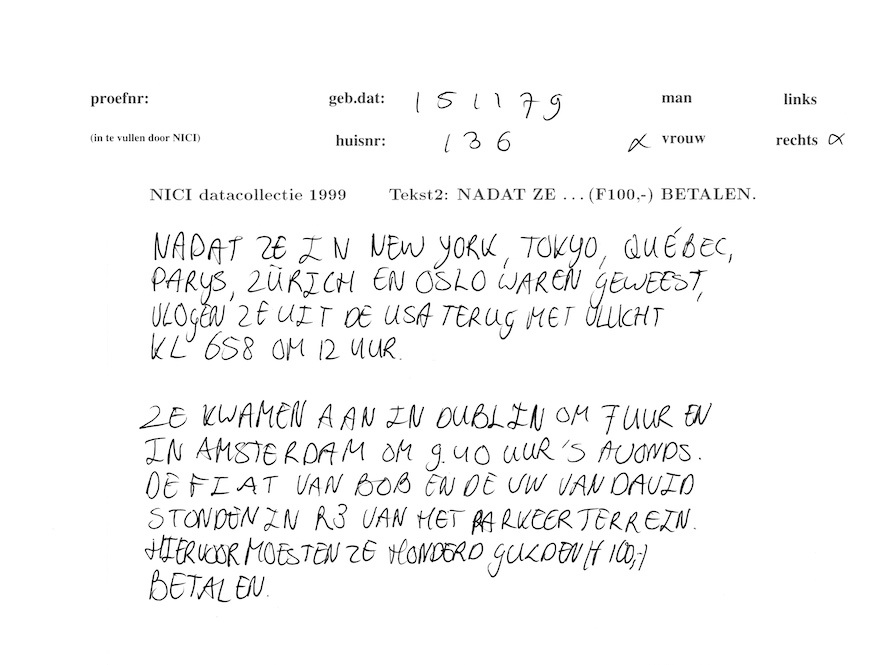 proefnr: geb.dat: 151179 man links
(in te vullen door NICI) huisnr: 136 x vrouw rechts x
NICI datacollectie 1999 Tekst2: NADAT ZE ... (F100,-) BETALEN.
NADAT ZE IN NEW YORK, TOKYO, QUÉBEC,
PARYS, ZÜRICH EN OSLO WAREN GEWEEST,
VLOGEN ZE UIT DE USA TERUG MET VLUCHT
KL 658 OM 12 UUR.
ZE KWAMEN AAN IN DUBLIN OM 7 UUR EN
IN AMSTERDAM OM 9.40 UUR 'S AVONDS.
DE FIAT VAN BOB EN DE VW VAN DAVID
STONDEN IN R3 VAN HET PARKEERTERREIN.
HIERVOOR MOESTEN ZE HONDERD GULDEN (F 100,-)
BETALEN.